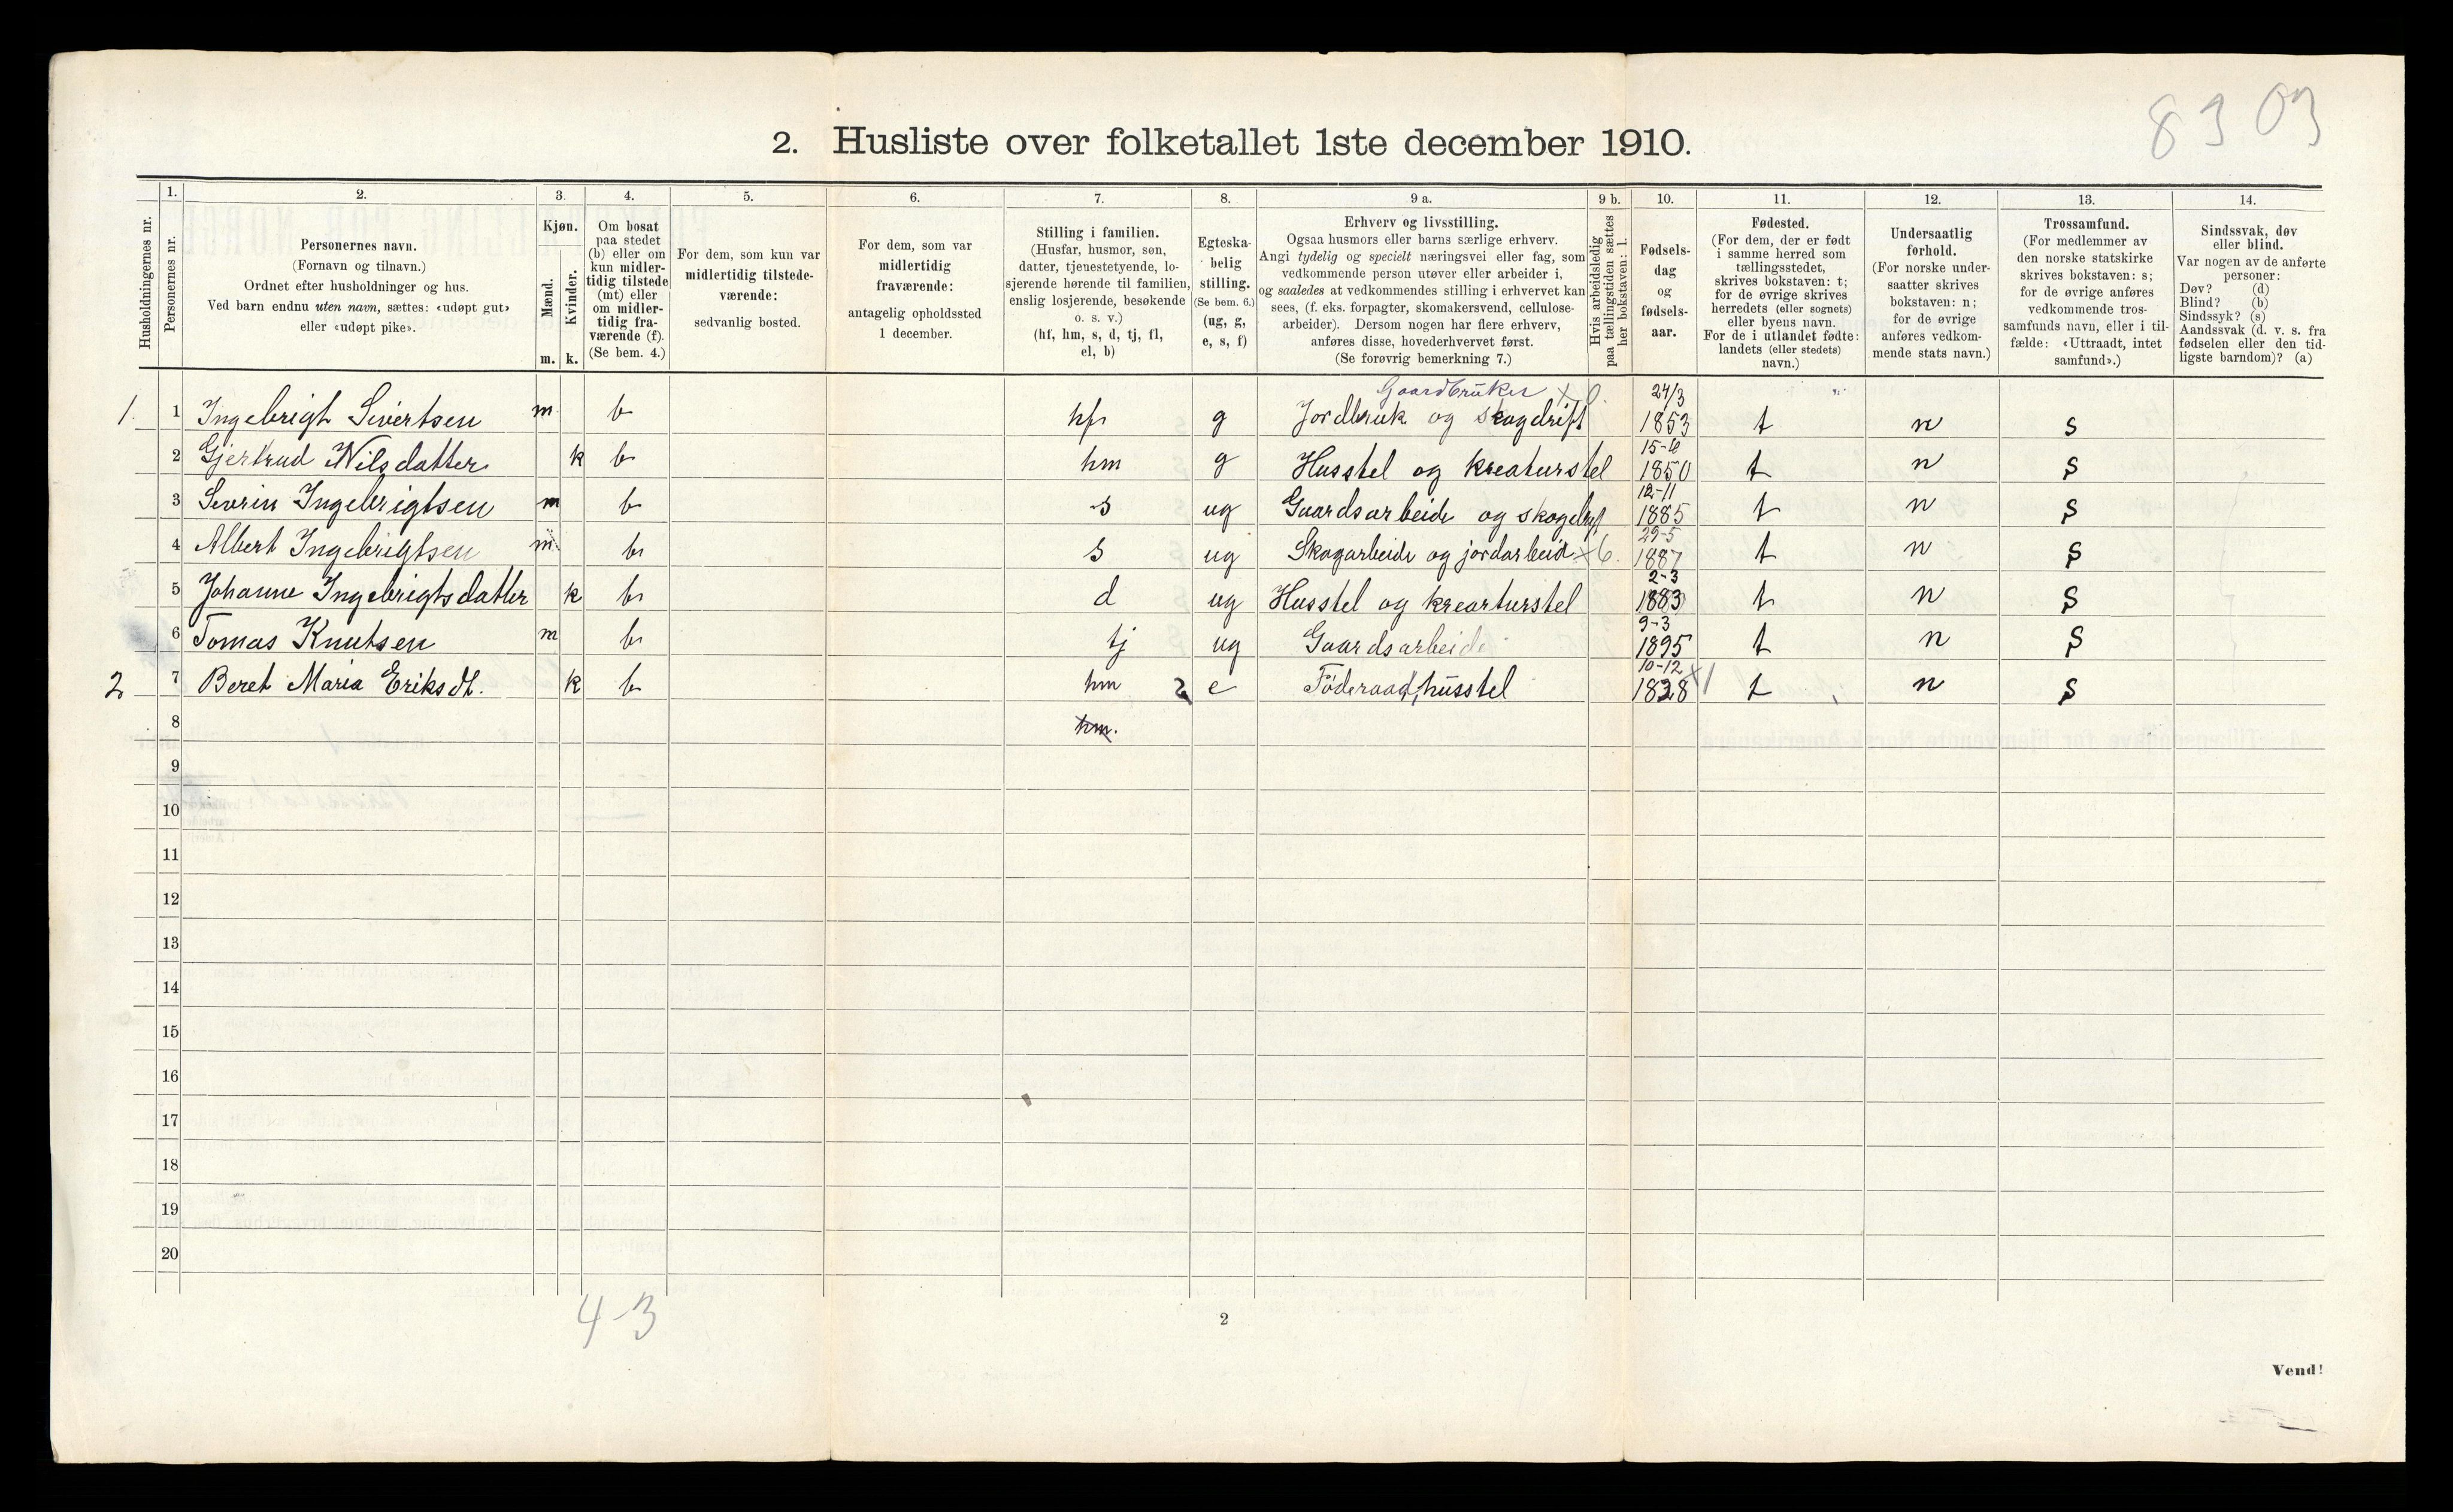 83 03
2. Husliste over folketallet 1ste december 1910.
Husholdningernes nr.
1.
Personernes nr.
2.
Personernes navn.
(Fornavn og tilnavn.)
Ordnet efter husholdninger og hus.
Ved barn endnu uten navn, sættes: «udøpt gut»
eller «udøpt pike».
3.
Kjøn.
Mænd.
Kvinder.
m. k.
4.
Om bosat
paa stedet
(b) eller om
kun midler-
tidig tilstede
(mt) eller
om midler-
tidig fra-
værende (f).
(Se bem. 4.)
5.
For dem, som kun var
midlertidig tilstede-
værende:
sedvanlig bosted.
6.
For dem, som var
midlertidig
fraværende:
antagelig opholdssted
1 december.
7.
Stilling i familien.
(Husfar, husmor, søn,
datter, tjenestetyende, lo-
sjerende hørende til familien,
enslig losjerende, besøkende
o. s. v.)
(hf, hm, s, d, tj, fl,
el, b)
8.
Egteska-
belig
stilling.
(Se bem. 6.)
(ug, g,
e, s, f)
9 a.
Erhverv og livsstilling.
Ogsaa husmors eller barns særlige erhverv.
Angi tydelig og specielt næringsvei eller fag, som
vedkommende person utøver eller arbeider i,
og saaledes at vedkommendes stilling i erhvervet kan
sees, (f. eks. forpagter, skomakersvend, cellulose-
arbeider). Dersom nogen har flere erhverv,
anføres disse, hovederhvervet først.
(Se forøvrig bemerkning 7.)
9 b.
Hvis arbeidsledig
paa tællingstiden sættes
her bokstaven: l.
10.
Fødsels-
dag
og
fødsels-
aar.
11.
Fødested.
(For dem, der er født
i samme herred som
tællingsstedet,
skrives bokstaven: t;
for de øvrige skrives
herredets (eller sognets)
eller byens navn.
For de i utlandet fødte:
landets (eller stedets)
navn.)
12.
Undersaatlig
forhold.
(For norske under-
saatter skrives
bokstaven: n;
for de øvrige
anføres vedkom-
mende stats navn.)
13.
Trossamfund.
(For medlemmer av
den norske statskirke
skrives bokstaven: s;
for de øvrige anføres
vedkommende tros-
samfunds navn, eller i til-
fælde: «Uttraadt, intet
samfund».)
14.
Sindssvak, døv
eller blind.
Var nogen av de anførte
personer:
Døv? (d)
Blind? (b)
Sindssyk? (s)
Aandssvak (d. v. s. fra
fødselen eller den tid-
ligste barndom)? (a)
Gaardbruker x 0. 24/3
1. 1 Ingebrigt Sivertsen m b hf g Jordbruk og skogdrift 1853 t n s
15-6
2 Gjertrud Nilsdatter k b hm g Husstel og kreaturstel 1850 t n s
12-11
3 Severin Ingebrigtsen m b s ug Gaardsarbeide og skogdrift 1885 t n s
29-5
4 Albert Ingebrigtsen m b s ug Skogarbeide og jordarbeid x 6. 1887 t n s
2-3
5 Johanne Ingebrigtsdatter k b d ug Husstel og krearturstel 1883 t n s
9-3
6 Tomas Knutsen m b tj ug Gaardsarbeide 1895 t n s
10-12
2 7 Beret Maria Eriksdt. k b hm 2 e Föderaad, husstel 1828 x1 t n s
8 hm.
9
10
11
12
13
14
15
16
17
18
19
20
4-3
2
Vend!